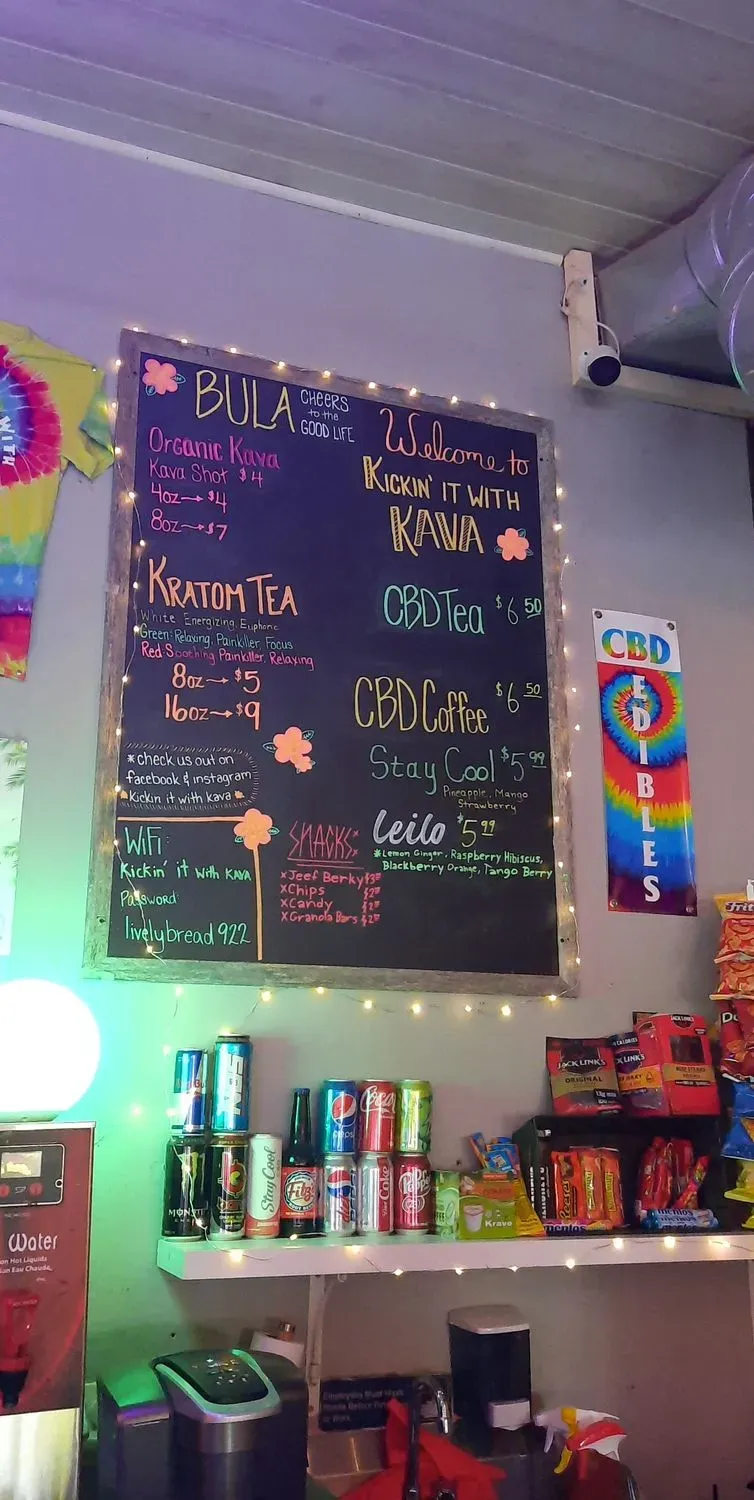 BULA
CHEERS
to the
GOOD LIFE
Organic Kava
Kava Shot $4
4oz→$4
8oz→$7
KRATOM TEA
White: Energizing, Euphoric
Green: Relaxing, Painkiller, Focus
Red: Soothing, Painkiller, Relaxing
8oz→$5
16oz→$9
*check us out on
facebook & instagram
Kickin it with kava
WiFi:
Kickin' it with KAVA
Password:
livelybread922
Welcome to
KICKIN' IT WITH
KAVA
CBD Tea $6 50
CBD Coffee $6 50
Stay Cool $5 99
Pineapple, Mango
Strawberry
Leilo $5 99
*Lemon Ginger, Raspberry Hibiscus,
Blackberry Orange, Tango Berry
SNACKS:
xJeef Berky
xChips
xCandy
xGranola Bars
WITH
CBD
EDIBLES
JACK LINK'S
ORIGINAL
JACK LINK'S
Stay Cool
Fitz's
pepsi
Coca
pepsi
Diet Coke
Dr Pepper
MONSTER
Krave
Reese's
mentos
mentos
Water
Hot Liquids
Eau Chaude
Employees Must Wash
Hands Before Returning
to Work